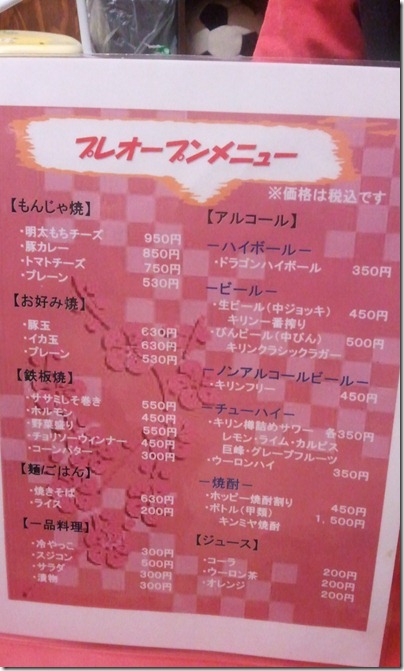 プレオープンメニュー
※価格は税込です
【もんじゃ焼】
・明太もちチーズ 950円
・豚カレー 850円
・トマトチーズ 750円
・プレーン 530円
【お好み焼】
・豚玉 630円
・イカ玉 630円
・プレーン 530円
【鉄板焼】
・ササミしそ巻き 550円
・ホルモン 450円
・野菜盛り 550円
・チョリソーウィンナー 450円
・コーンバター 300円
【麺・ごはん】
・焼きそば 630円
・ライス 200円
【一品料理】
・冷やっこ 300円
・スジコン 500円
・サラダ 300円
・漬物 300円
【アルコール】
－ハイボール－
・ドラゴンハイボール 350円
－ビール－
・生ビール(中ジョッキ) 450円
キリン一番搾り
・びんビール(中びん) 500円
キリンクラシックラガー
－ノンアルコールビール－
・キリンフリー 450円
－チューハイ－
・キリン樽詰めサワー 各350円
レモン・ライム・カルピス
巨峰・グレープフルーツ
・ウーロンハイ 350円
－焼酎－
・ホッピー焼酎割り 450円
・ボトル(甲類) 1,500円
キンミヤ焼酎
【ジュース】
・コーラ 200円
・ウーロン茶 200円
・オレンジ 200円